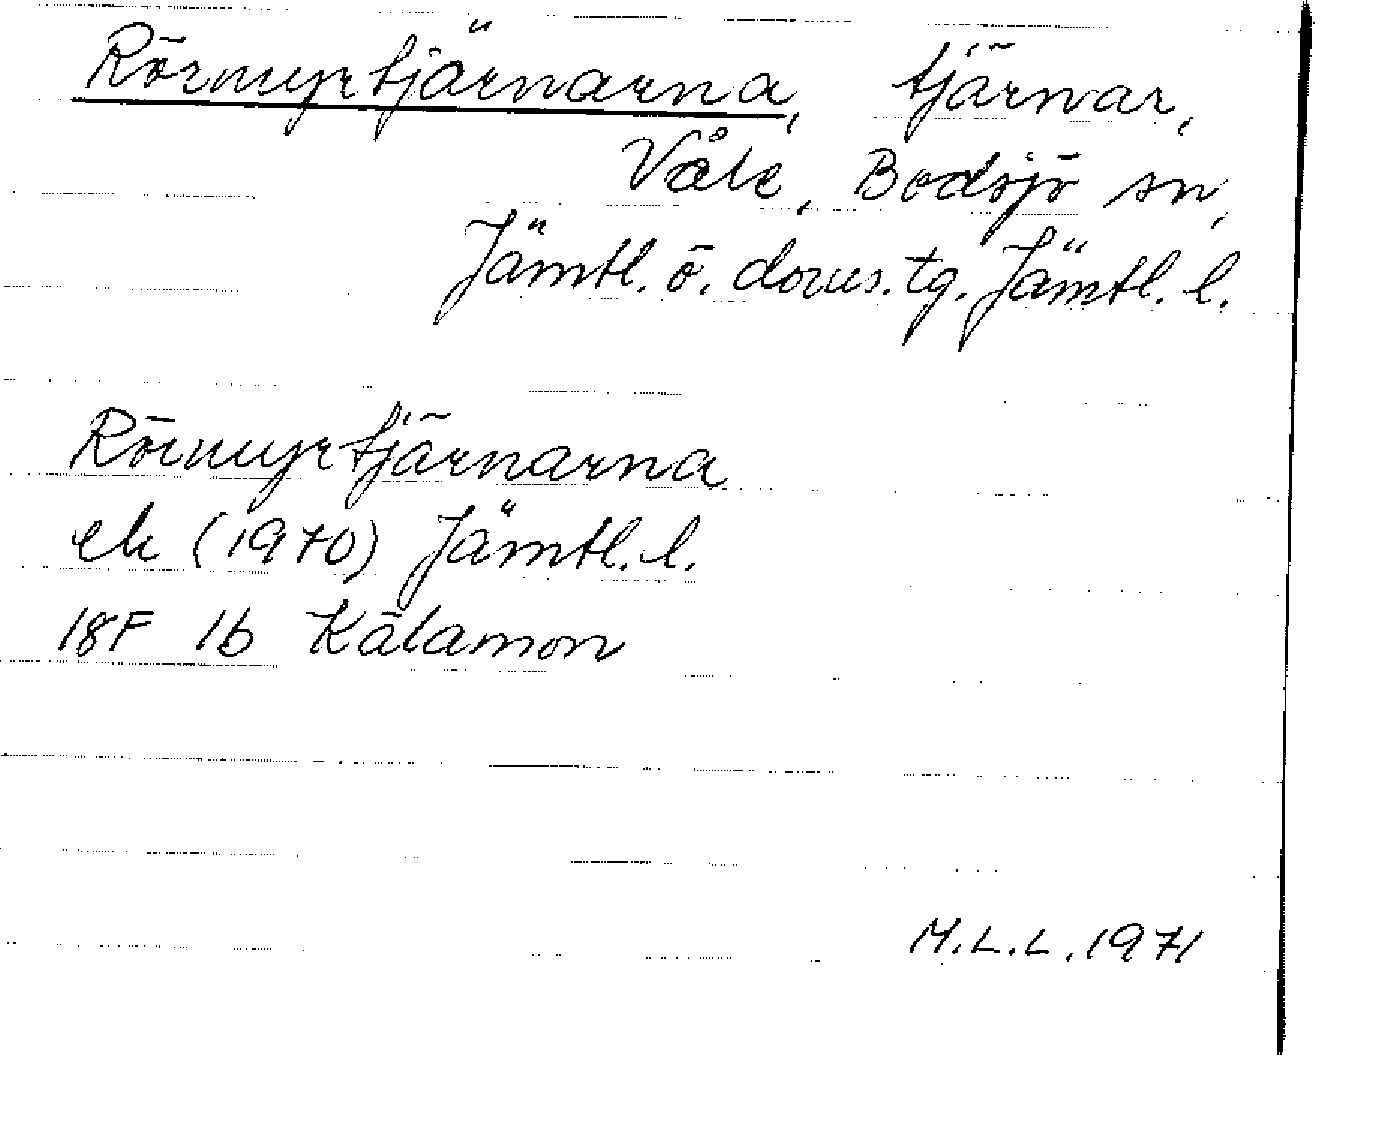 Rörmyrtjärnarna, tjärnar,
Våle, Bodsjö sn,
Jämtl. ö. doms. tg. Jämtl. l.
Rörmyrtjärnarna
ek (1970) Jämtl. l.
18F 1b Kälamon
M.L.L. 1971